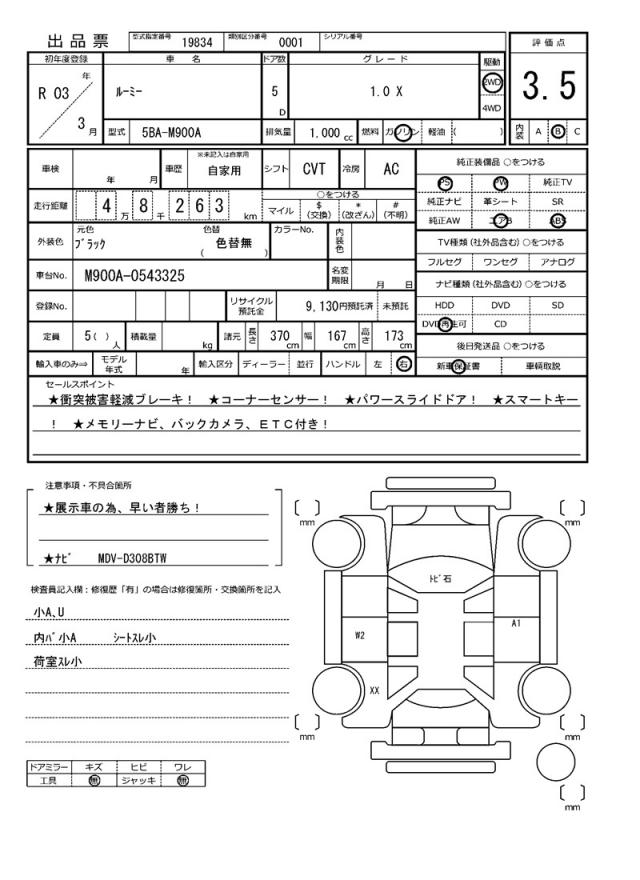 出品票 型式指定番号 19834 類別区分番号 0001 シリアル番号
評価点
3.5
内装 A B C
初年度登録 車名 ドア数 グレード 駆動
R 03 年 3 月 ルーミー 5 D 1.0 X 2WD 4WD
型式 5BA-M900A 排気量 1.000 cc 燃料 ガソリン 軽油 ( )
車検 年 月 車歴 ※未記入は自家用 自家用 シフト CVT 冷房 AC
走行距離 4 万 8 千 2 6 3 km ○をつける
マイル $ (交換) * (改ざん) # (不明)
外装色 元色 ブラック 色替 色替無 ( ) カラーNo. 内装色
車台No. M900A-0543325 名変期限 月 日
登録No. リサイクル預託金 9,130円預託済 未預託
定員 5( ) 人 積載量 kg 諸元 長さ 370 cm 幅 167 cm 高さ 173 cm
輸入車のみ⇒ モデル年式 年 輸入区分 ディーラー 並行 ハンドル 左 右
純正装備品 ○をつける
PS PW 純正TV
純正ナビ 革シート SR
純正AW エアB ABS
TV種類(社外品含む)○をつける
フルセグ ワンセグ アナログ
ナビ種類(社外品含む)○をつける
HDD DVD SD
DVD再生可 CD
後日発送品 ○をつける
新車保証書 車輌取説
セールスポイント
★衝突被害軽減ブレーキ! ★コーナーセンサー! ★パワースライドドア! ★スマートキー
! ★メモリーナビ、バックカメラ、ETC付き!
注意事項・不具合箇所
★展示車の為、早い者勝ち!
★ナビ MDV-D308BTW
検査員記入欄:修復歴「有」の場合は修復箇所・交換箇所を記入
小A、U
内バ小A シートスレ小
荷室スレ小
ドアミラー キズ ヒビ ワレ
工具 無 ジャッキ 無
[ ] mm
[ ] mm
トビ石
W2
A1
XX
[ ] mm
[ ] mm
[ ] mm